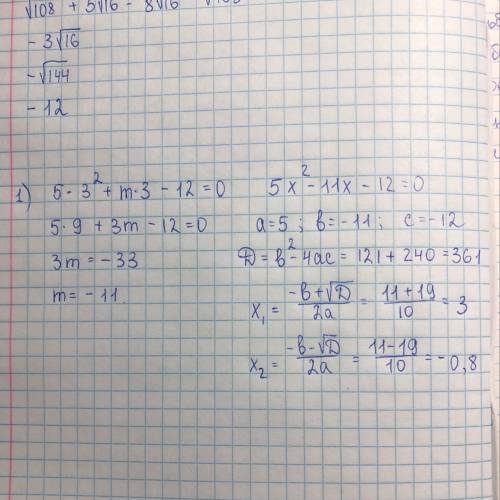 √108 + 5√16 - 8√16 -
- 3√16
- √144
- 12
1) 5 · 3² + m · 3 - 12 = 0
5 · 9 + 3m - 12 = 0
3m = - 33
m = - 11
5x² - 11x - 12 = 0
a = 5 ; b = - 11 ; c = - 12
D = b² - 4ac = 121 + 240 = 361
x₁ = (-b + √D)/2a = (11 + 19)/10 = 3
x₂ = (-b - √D)/2a = (11 - 19)/10 = - 0,8